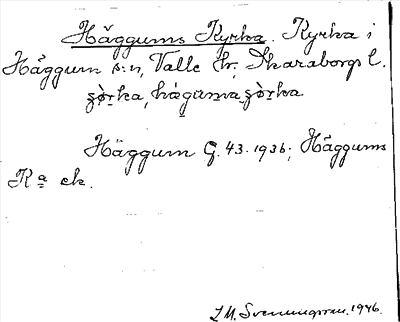 Häggums Kyrka. Kyrka i
Häggum s:n, Valle hr, Skaraborgs l.
ʂò̤rka, hágumaʂò̤rka
Häggum G. 43. 1936; Häggums
Kª ek.
L.M. Svenungsson. 1946.